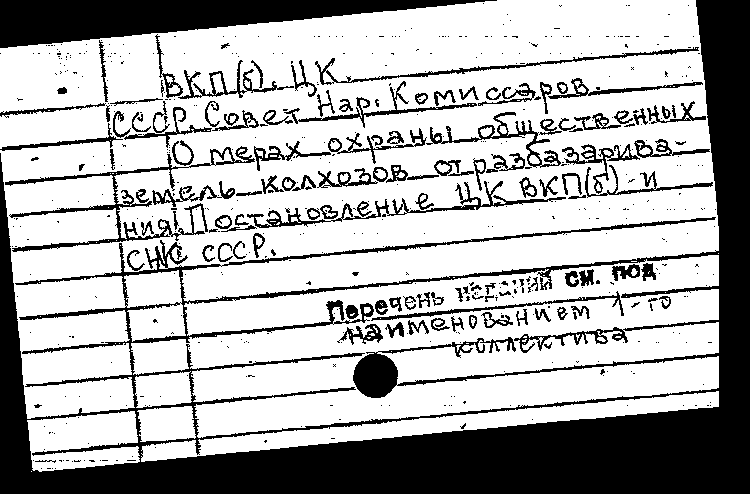 ВКП(б). ЦК.
СССР. Совет Нар. Комиссаров.
О мерах охраны общественных
земель колхозов от разбазарива-
ния. Постановление ЦК ВКП(б) и
СНК СССР.
Перечень изданий см. под
наименованием 1-го
коллектива